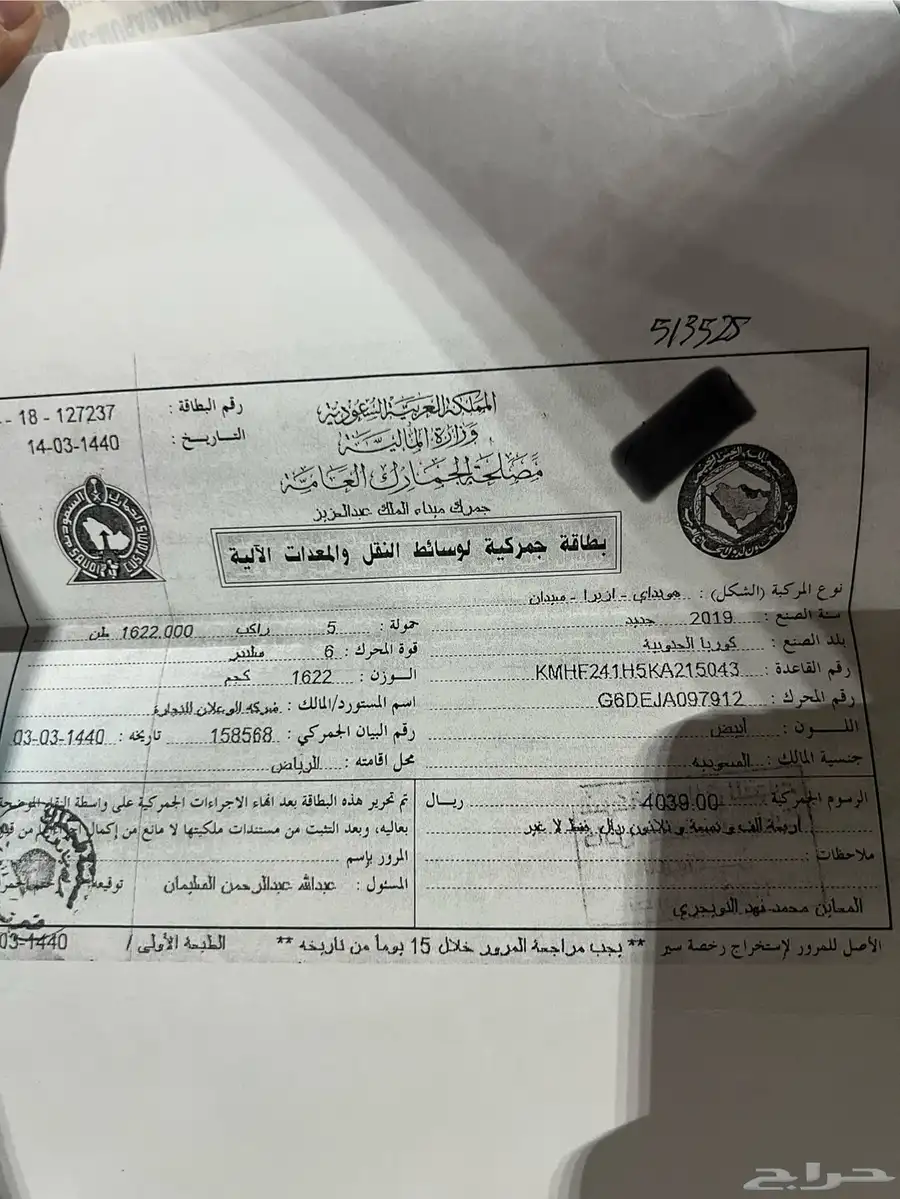 513528
المملكة العربية السعودية
وزارة المالية
مصلحة الجمارك العامة
جمرك ميناء الملك عبدالعزيز
رقم البطاقة : - 18 - 127237
التاريخ : 14-03-1440
بطاقة جمركية لوسائط النقل والمعدات الآلية
نوع المركبة (الشكل) : هونداي - ازيرا - سيدان
سنة الصنع : 2019 جديد
حمولة : 5 راكب 1622.000 طن
بلد الصنع : كوريا الجنوبية
قوة المحرك : 6 سلندر
رقم القاعدة : KMHF241H5KA215043
الوزن : 1622 كجم
رقم المحرك : G6DEJA097912
اسم المستورد/المالك : شركة الوعلان للتجارة
اللون : أبيض
رقم البيان الجمركي : 158568 تاريخه : 03-03-1440
جنسية المالك : السعودية
محل اقامته : الرياض
الرسوم الجمركية 4039.00 ريال
اربعة الف و تسعة و ثلاثون ريال فقط لا غير
ملاحظات :
المعاين محمد فهد النويجري
تم تحرير هذه البطاقة بعد انهاء الاجراءات الجمركية على واسطة النقل الموضحة
بعاليه، وبعد التثبت من مستندات ملكيتها لا مانع من إكمال من
المرور بإسم
المسئول : عبدالله عبدالرحمن السليمان
الأصل للمرور لإستخراج رخصة سير ** يجب مراجعة المرور خلال 15 يوما من تاريخه ** الطبعة الأولى / 03-1440
حراج